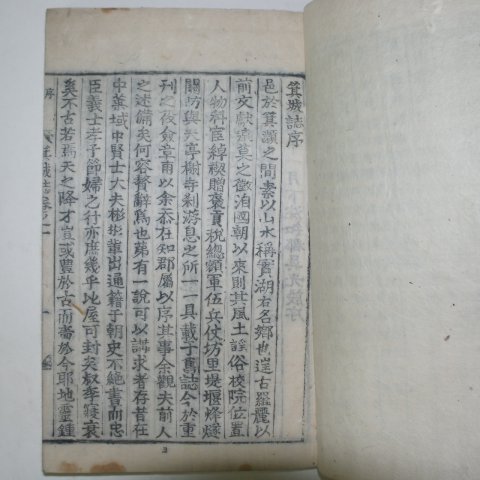 箕城誌序
邑於箕㶖之間素以山水稱實湖右名鄉也逞古羅麗以
前文獻齊莫之徵洎國朝以來則其風土謠俗校院位置
人物科宦綽楔贈褒貢稅總領軍伍兵仗坊里堤堰烽燧
關防與夫亭榭寺刹游息之所一一具載于舊誌今於重
刊之夜僉章甫以余忝在知郡屬以序其事余觀夫前人
之述備矣何容贅辭爲也第有一說可以講求者存昔在
中葉域中賢士大夫彬彬輩出通籍于朝史不絶書而忠
臣義士孝子節婦之行亦庶幾乎比屋可封矣叔季寢衰
奠不古若焉天之降才豈或豊於古而嗇於今耶地靈鍾
序 箕城誌卷之一